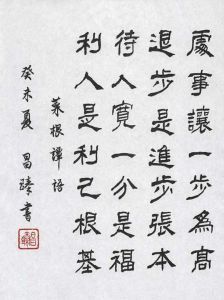 處事讓一步為高
退步是進步張本
待人寬一分是福
利人是利己根基
菜根譚語
癸未夏 昌陸書